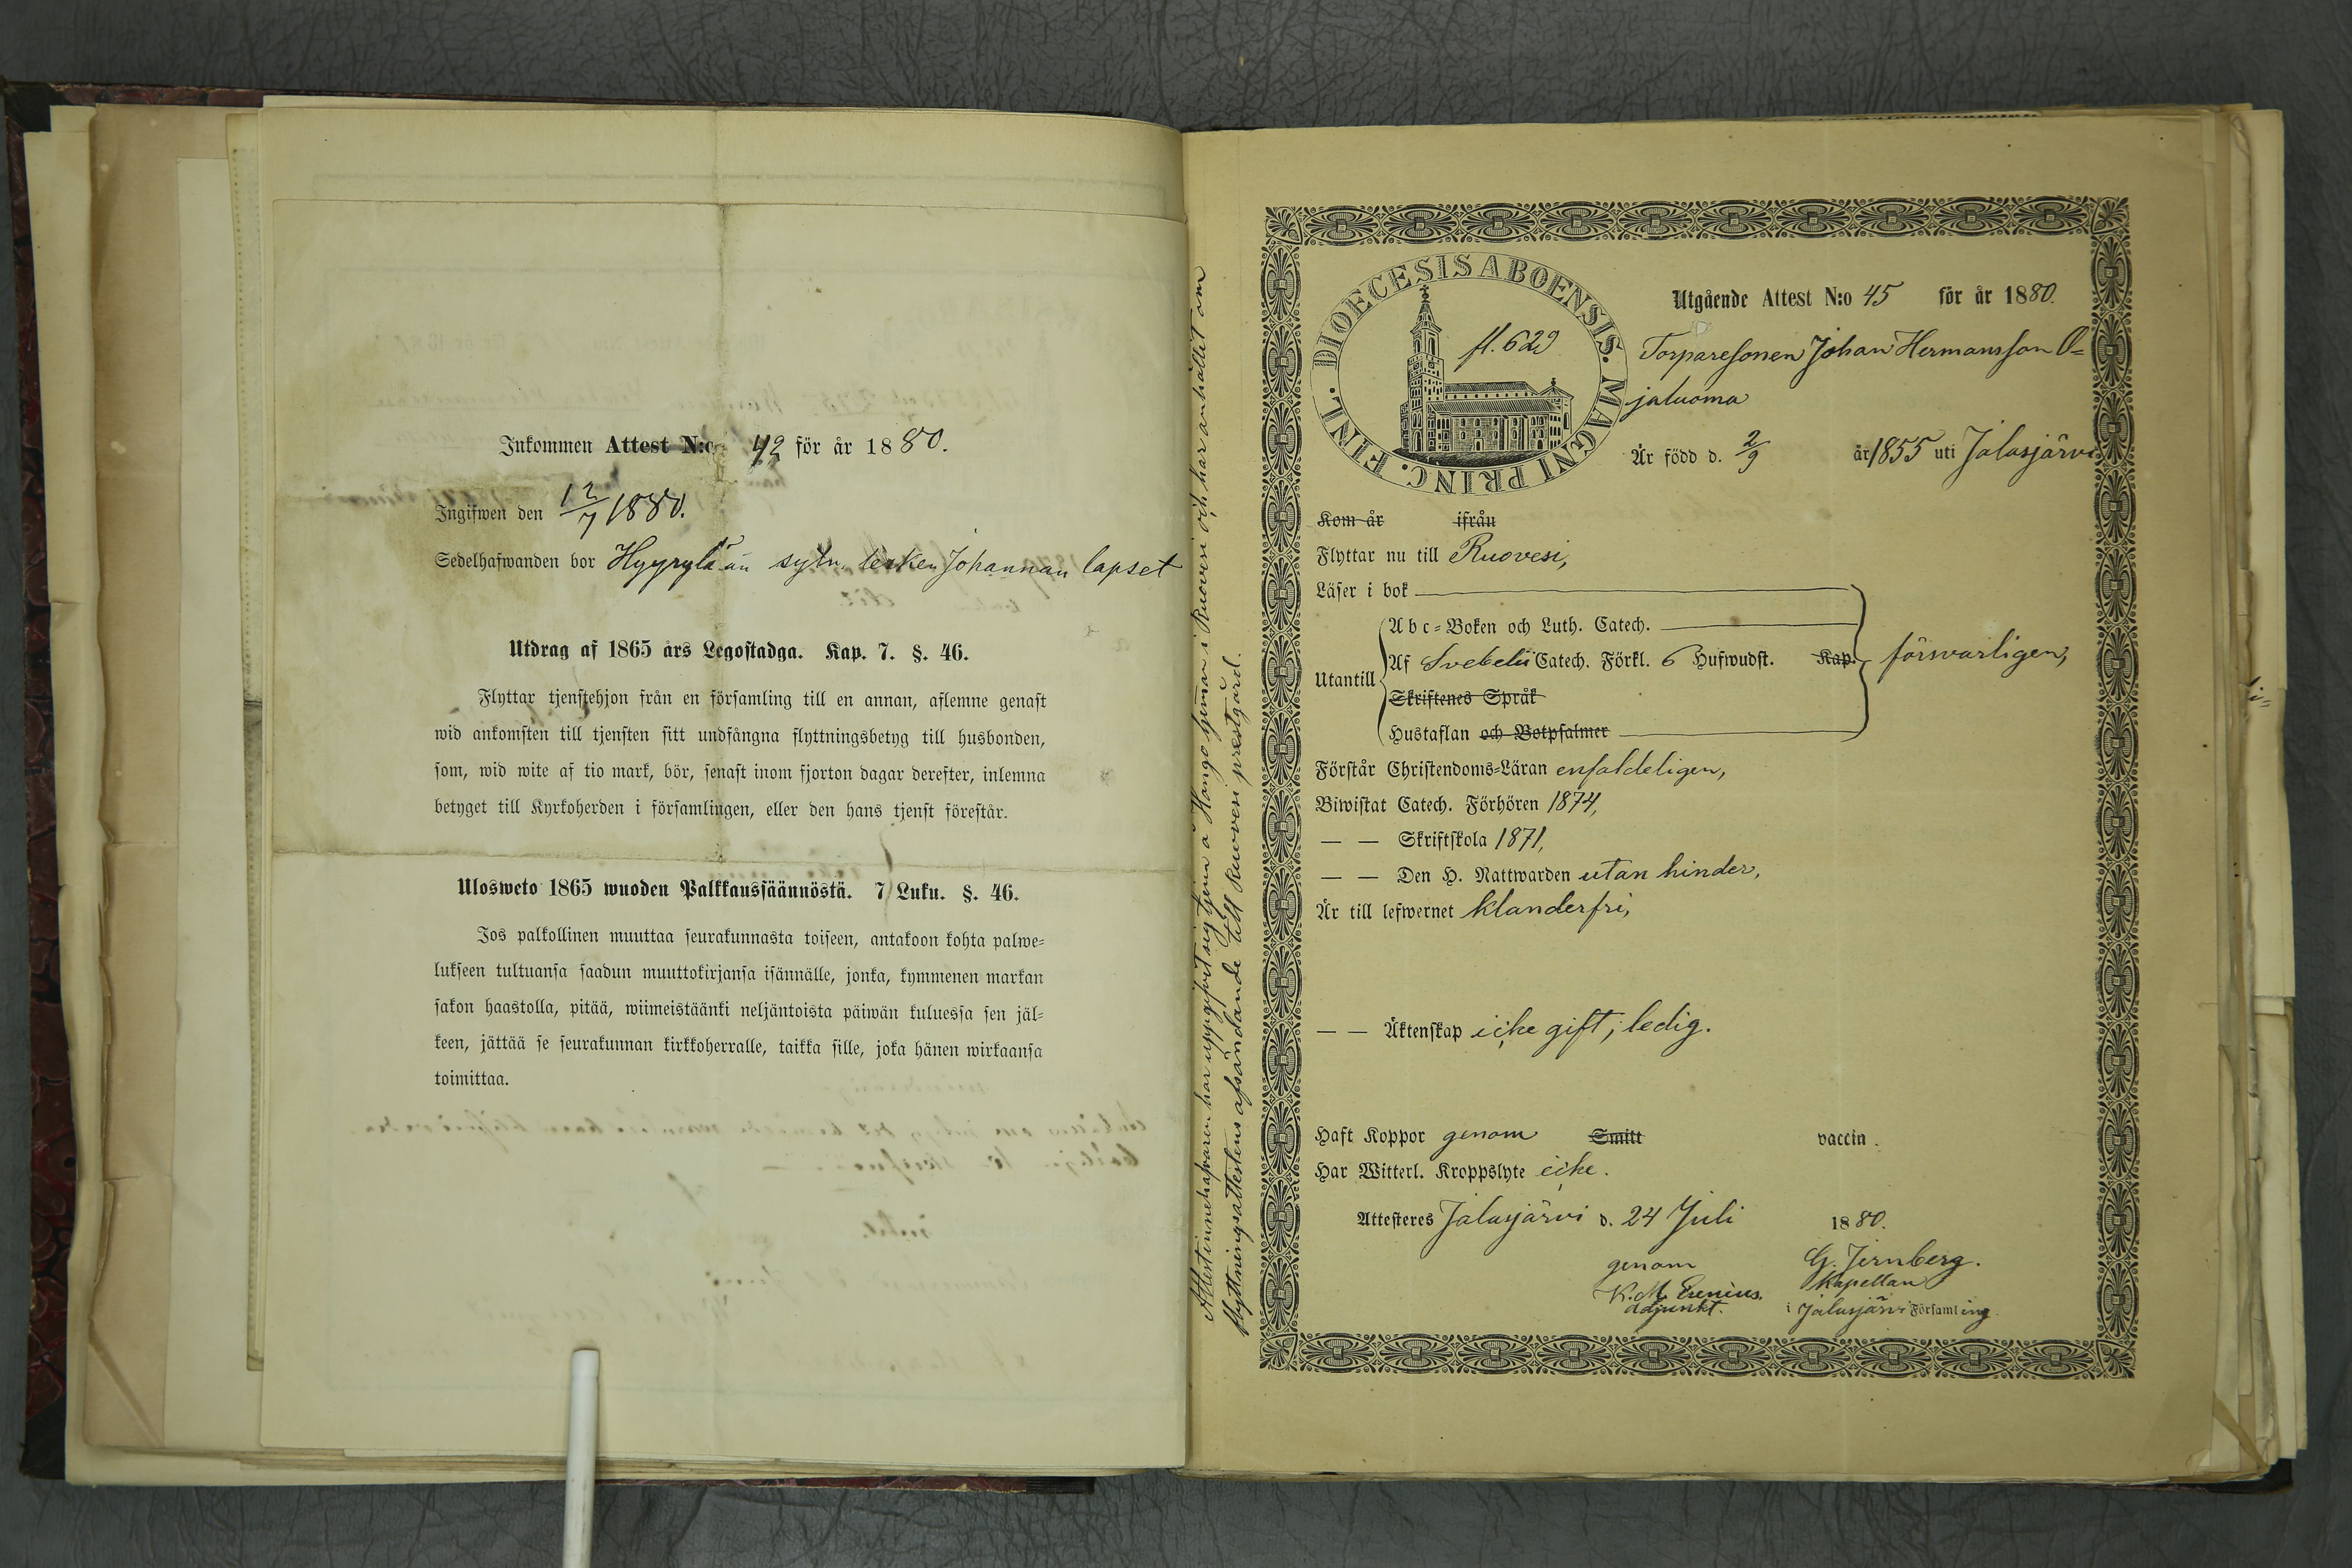 Inkommen Attest N:o 42 för år 1880.
Ingifwen den 12/7 1880.
Sedelhafwanden bor Hyyrylään sytn. lesken Johannan lapset
Utdrag af 1865 års Legostadga. Kap. 7. §. 46.
Flyttar tjenstehjon från en församling till en annan, aflemne genast
wid ankomsten till tjensten sitt undfångna flyttningsbetyg till husbonden,
som, wid wite af tio mark, bör, senast inom fjorton dagar derefter, inlemna
betyget till Kyrkoherden i församlingen, eller den hans tjenst förestår.
Ulosweto 1865 wuoden Palkkaussäännöstä. 7 Luku. §. 46.
Jos palkollinen muuttaa seurakunnasta toiseen, antakoon kohta palwe=
lukseen tultuansa saadun muuttokirjansa isännälle, jonka, kymmenen markan
sakon haastolla, pitää, wiimeistäänki neljäntoista päiwän kuluessa sen jäl=
keen, jättää se seurakunnan kirkkoherralle, taikka sille, joka hänen wirkaansa
toimittaa.
Attestinnehafvaren har uppgifvit sig tjena å Hongo hemman i Ruovesi och har anhållit om
flyttningsattestens afsändande till Ruovesi prestgård.
DIOECESIS ABOENSIS. MAGNI PRINC. FINL.
fl. 629
Utgående Attest N:o 45 för år 1880.
Torparesonen Johan Hermansson O=
jaluoma
Är född d. 2/9 år 1855 uti Jalasjärvi
Kom år ifrån
Flyttar nu till Ruovesi,
Läser i bok
Utantill
Abc=Boken och Luth. Catech.
Af Svebelii Catech. Förkl. 6 Hufwudst. Kap. försvarligen,
Skriftenes Språk
Hustaflan och Botpsalmer
Förstår Christendoms=Läran enfaldeligen,
Biwistat Catech. Förhören 1874,
— — Skriftskola 1871,
— — Den H. Nattwarden utan hinder,
Är till lefwernet klanderfri,
— — Äktenskap icke gift; ledig.
Haft Koppor genom Smitt vaccin.
Har Witterl. Kroppslyte icke.
Attesteres Jalasjärvi d. 24 Juli 1880.
genom G. Jernberg.
K. M. Erenius. Kapellan
adjunkt. i Jalasjärvi Församling